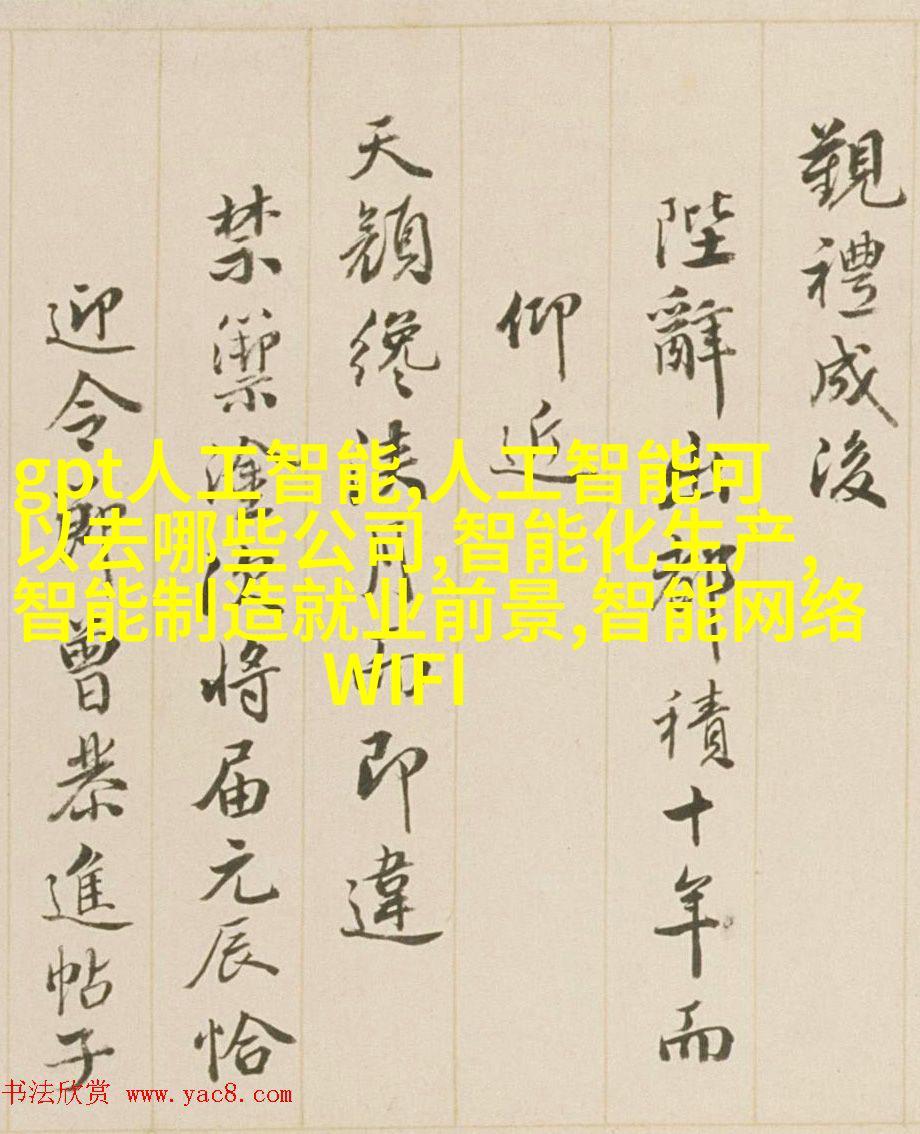 觀禮成後
陛辭出都積十年而
仰近
天顏纔浹月而即違
禁籞塗次將届元辰恰
迎令節曾恭進帖子
gpt人工智能,人工智能可
以去哪些公司,智能化生产,
智能制造就业前景,智能网络
WIFI
书法欣赏 www.yac8.com